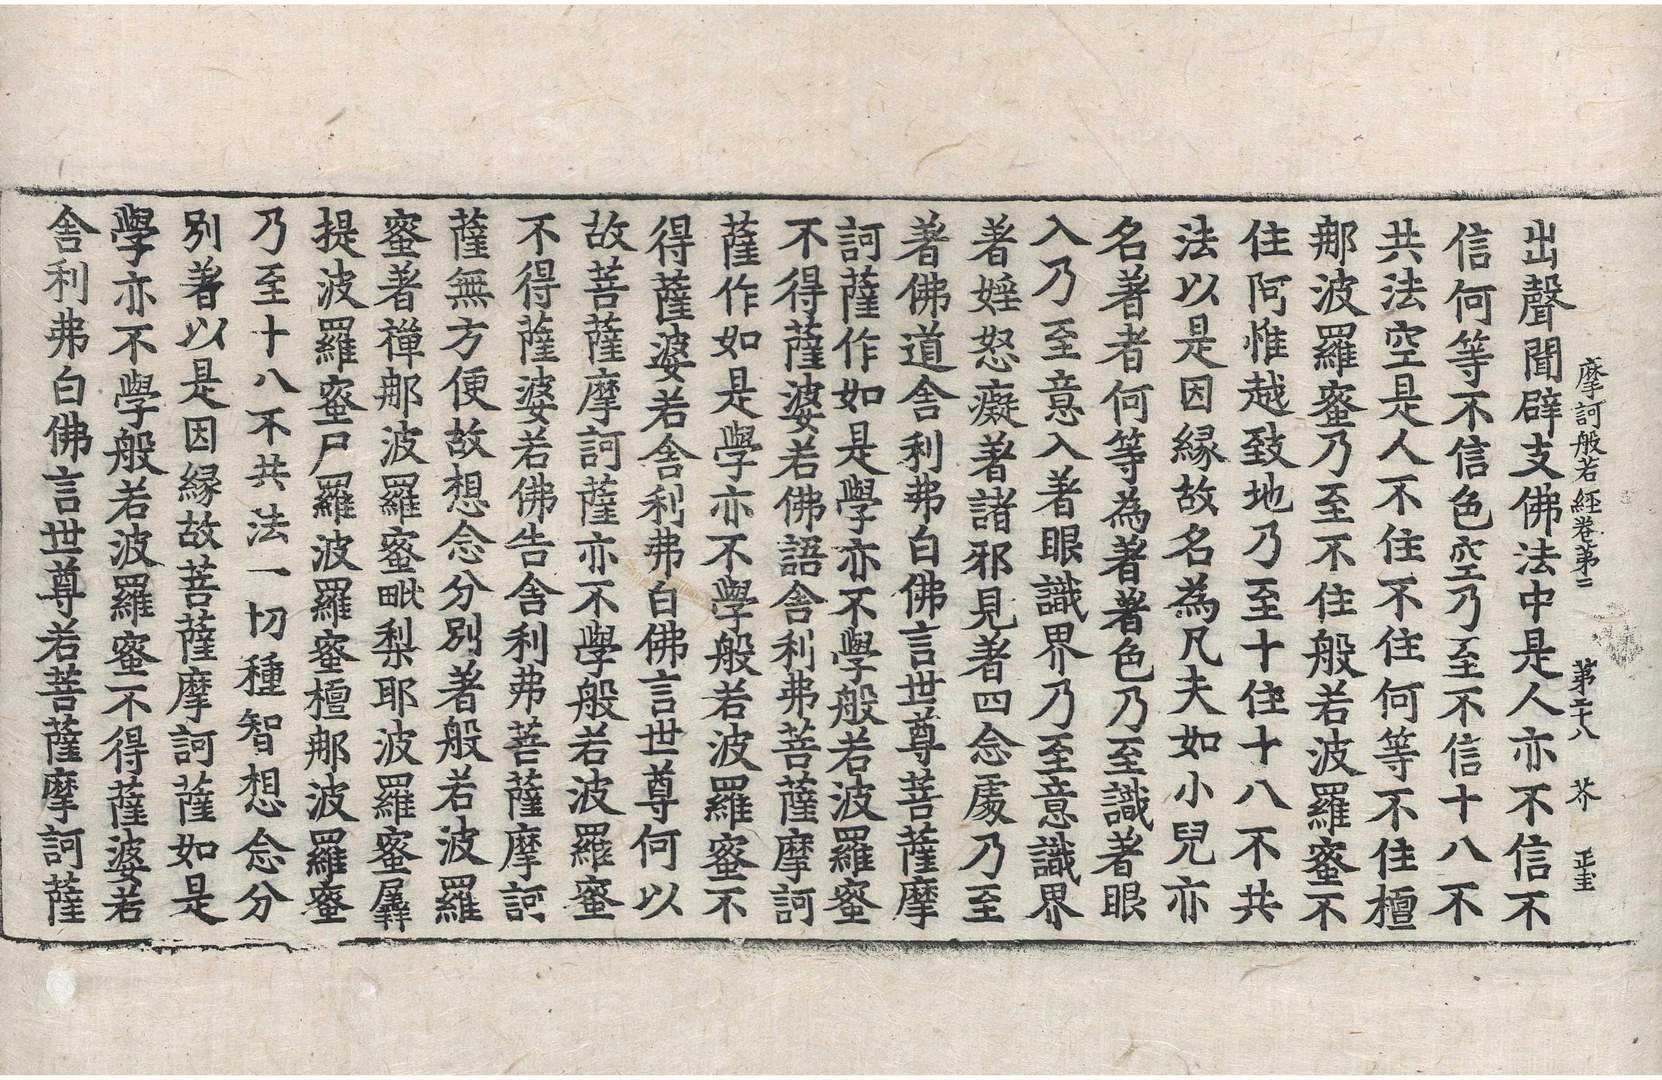 摩訶般若經卷第二　第二十八　芥　正圭
出聲聞辟支佛法中是人亦不信不
信何等不信色空乃至不信十八不
共法空是人不住不住何等不住檀
那波羅蜜乃至不住般若波羅蜜不
住阿惟越致地乃至十住十八不共
法以是因縁故名為凡夫如小兒亦
名著者何等為著著色乃至識著眼
入乃至意入著眼識界乃至意識界
著婬怒癡著諸邪見著四念處乃至
著佛道舎利弗白佛言世尊菩薩摩
訶薩作如是學亦不學般若波羅蜜
不得薩婆若佛語舎利弗菩薩摩訶
薩作如是學亦不學般若波羅蜜不
得薩婆若舎利弗白佛言世尊何以
故菩薩摩訶薩亦不學般若波羅蜜
不得薩婆若佛告舎利弗菩薩摩訶
薩無方便故想念分別著般若波羅
蜜著禪那波羅蜜毗梨耶波羅蜜羼
提波羅蜜尸羅波羅蜜檀那波羅蜜
乃至十八不共法一切種智想念分
別著以是因縁故菩薩摩訶薩如是
學亦不學般若波羅蜜不得薩婆若
舎利弗白佛言世尊若菩薩摩訶薩